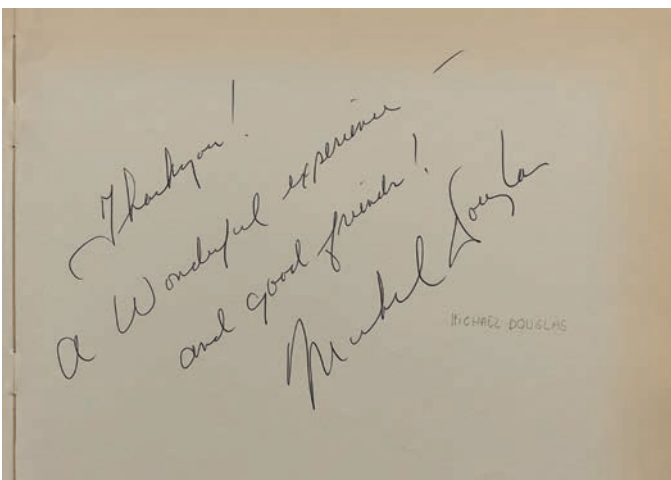 Thankyou!
a Wonderful experience –
and good friends!
Michael Douglas
MICHAEL DOUGLAS